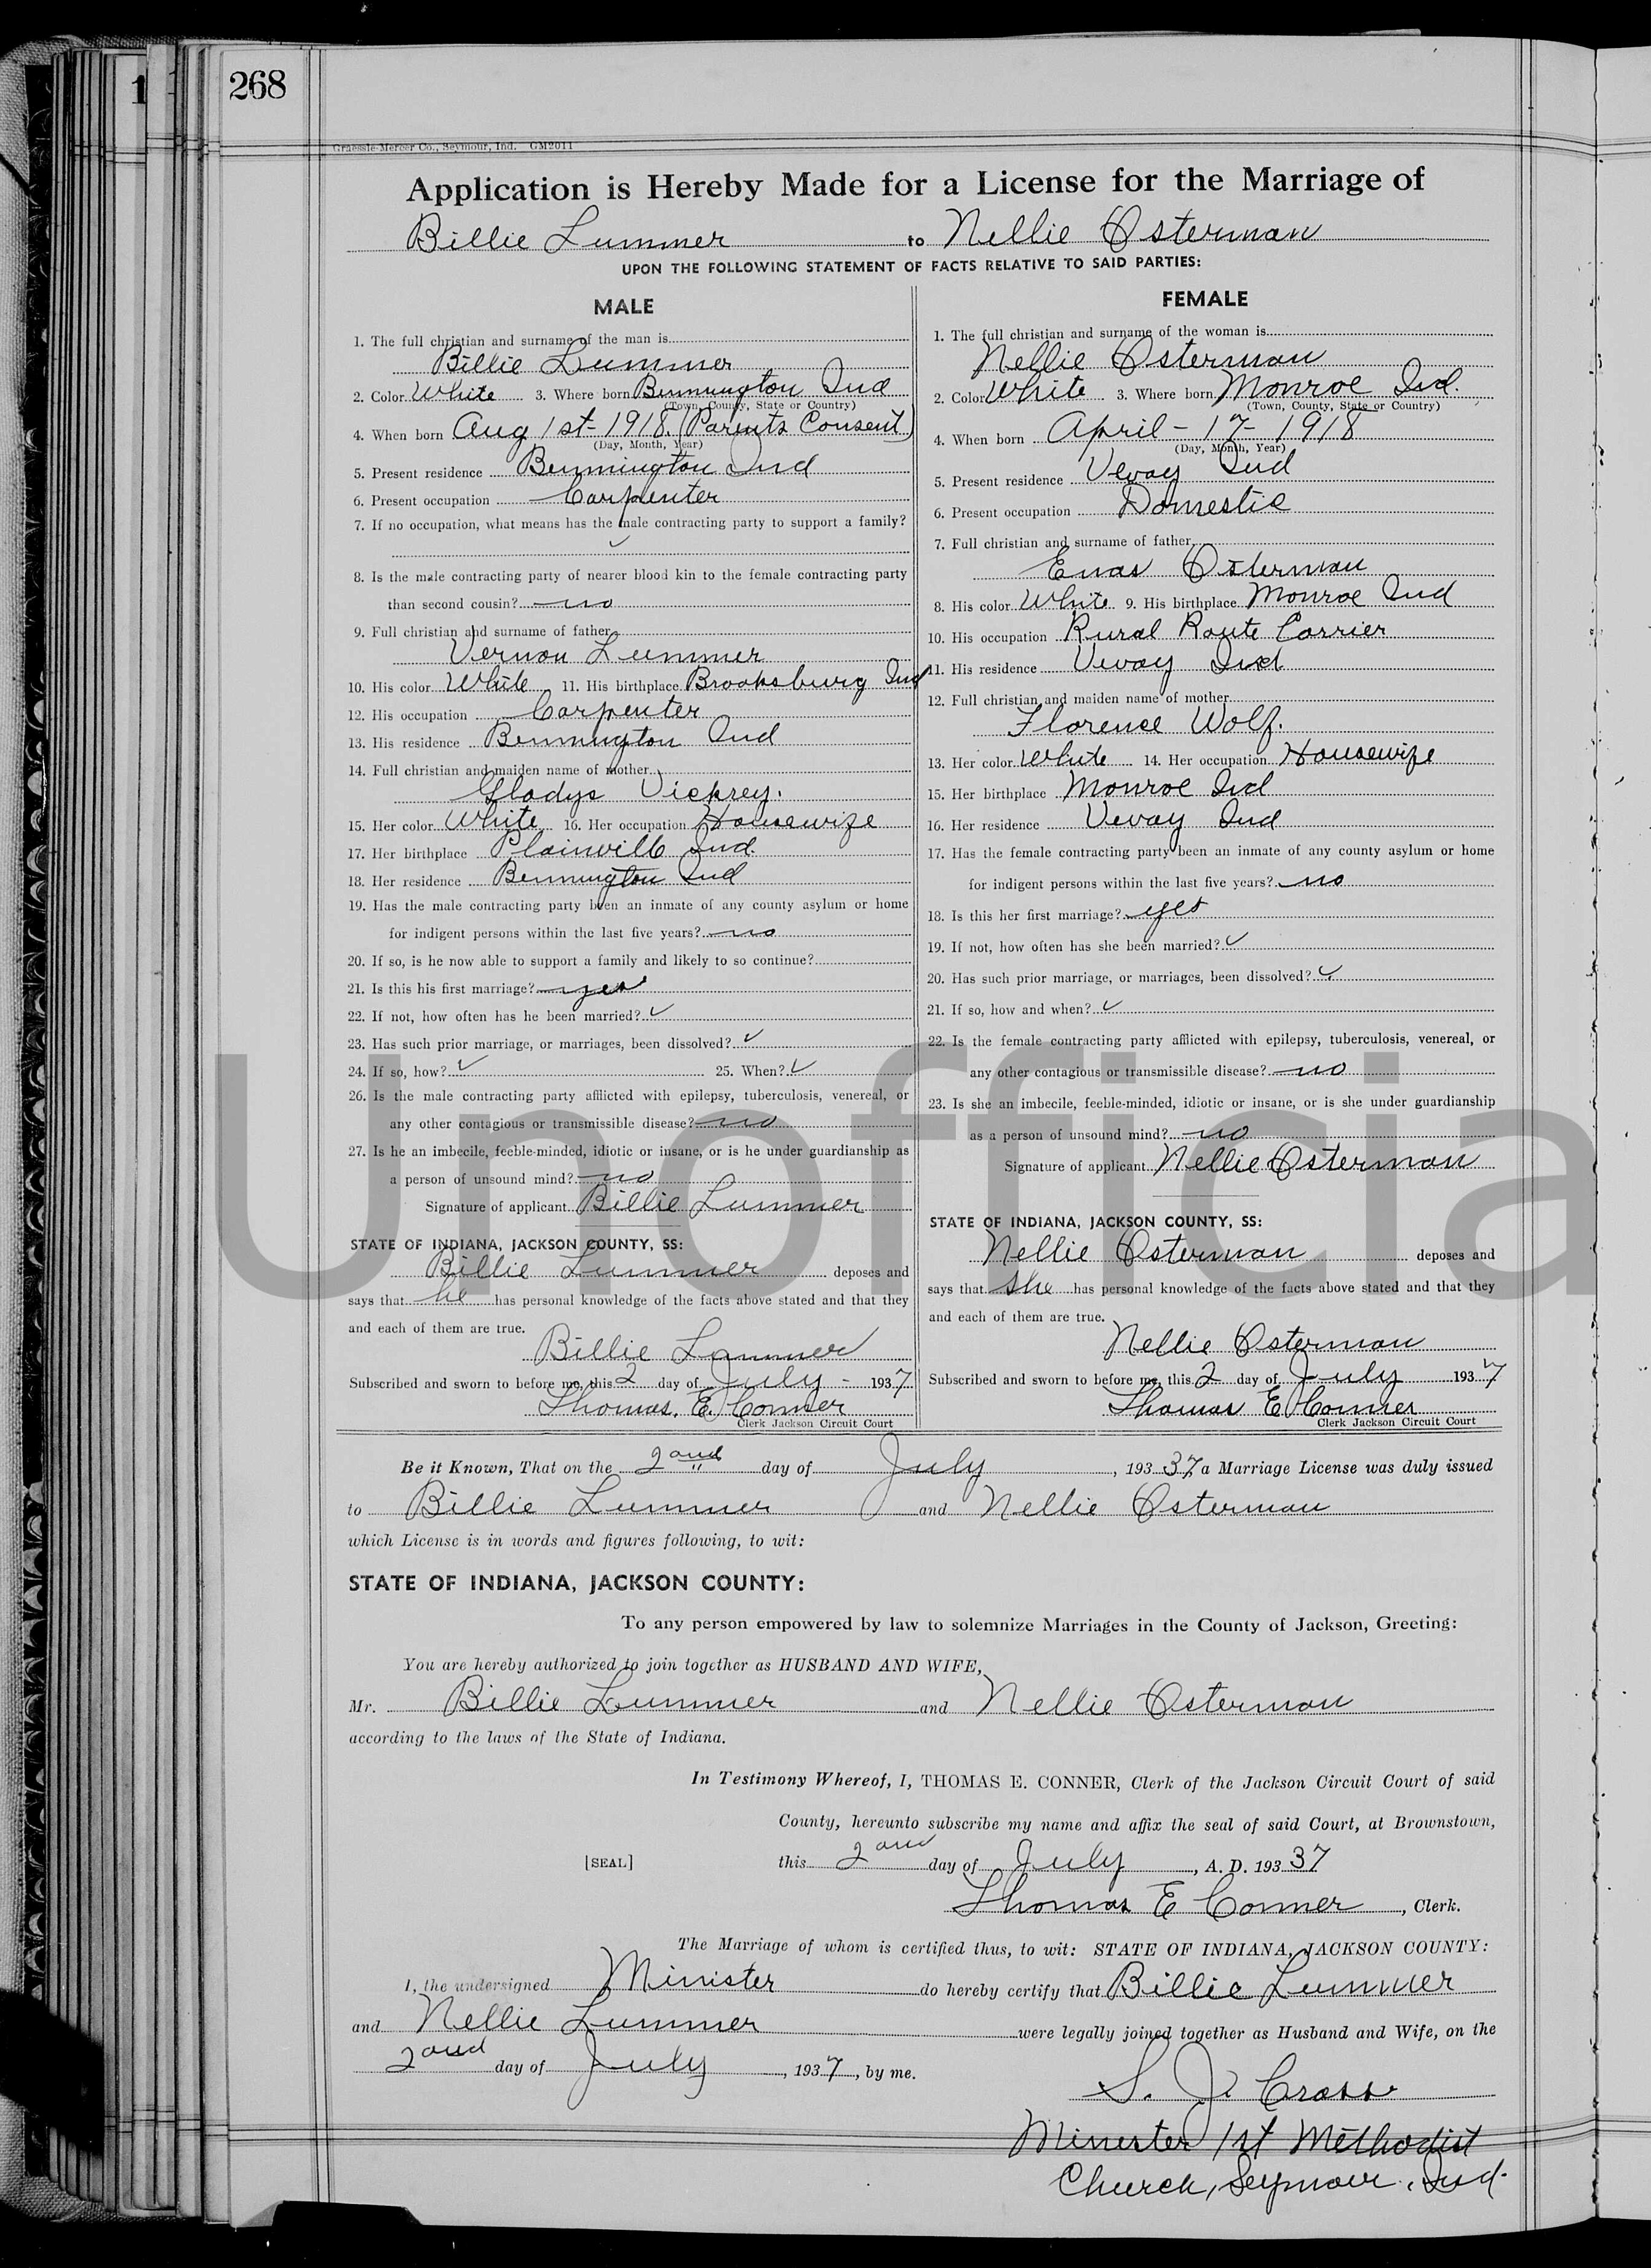 1
268
Graessle-Mercer Co., Seymour, Ind. GM2011
Application is Hereby Made for a License for the Marriage of
Billie Lummer to Nellie Osterman
UPON THE FOLLOWING STATEMENT OF FACTS RELATIVE TO SAID PARTIES:
MALE
1. The full christian and surname of the man is
Billie Lummer
2. Color White 3. Where born Bennington Ind
(Town, County, State or Country)
4. When born Aug 1st-1918. (Parents Consent)
(Day, Month, Year)
5. Present residence Bennington Ind
6. Present occupation Carpenter
7. If no occupation, what means has the male contracting party to support a family?
✓
8. Is the male contracting party of nearer blood kin to the female contracting party
than second cousin? no
9. Full christian and surname of father
Vernon Lummer
10. His color White 11. His birthplace Brooksburg Ind
12. His occupation Carpenter
13. His residence Bennington Ind
14. Full christian and maiden name of mother
Gladys Vickrey.
15. Her color White 16. Her occupation Housewife
17. Her birthplace Plainville Ind.
18. Her residence Bennington Ind
19. Has the male contracting party been an inmate of any county asylum or home
for indigent persons within the last five years? no
20. If so, is he now able to support a family and likely to so continue?
21. Is this his first marriage? yes
22. If not, how often has he been married? ✓
23. Has such prior marriage, or marriages, been dissolved? ✓
24. If so, how? ✓ 25. When? ✓
26. Is the male contracting party afflicted with epilepsy, tuberculosis, venereal, or
any other contagious or transmissible disease? no
27. Is he an imbecile, feeble-minded, idiotic or insane, or is he under guardianship as
a person of unsound mind? no
Signature of applicant Billie Lummer
STATE OF INDIANA, JACKSON COUNTY, SS:
Billie Lummer deposes and
says that he has personal knowledge of the facts above stated and that they
and each of them are true.
Billie Lummer
Subscribed and sworn to before me, this 2 day of July - 1937
Thomas. E. Conner
Clerk Jackson Circuit Court
FEMALE
1. The full christian and surname of the woman is
Nellie Osterman
2. Color White 3. Where born Monroe Ind.
(Town, County, State or Country)
4. When born April - 17 - 1918
(Day, Month, Year)
5. Present residence Vevay Ind
6. Present occupation Domestic
7. Full christian and surname of father
Enas Osterman
8. His color White 9. His birthplace Monroe Ind
10. His occupation Rural Route Carrier
11. His residence Vevay Ind
12. Full christian and maiden name of mother
Florence Wolf.
13. Her color White 14. Her occupation Housewife
15. Her birthplace Monroe Ind
16. Her residence Vevay Ind
17. Has the female contracting party been an inmate of any county asylum or home
for indigent persons within the last five years? no
18. Is this her first marriage? yes
19. If not, how often has she been married? ✓
20. Has such prior marriage, or marriages, been dissolved? ✓
21. If so, how and when? ✓
22. Is the female contracting party afflicted with epilepsy, tuberculosis, venereal, or
any other contagious or transmissible disease? no
23. Is she an imbecile, feeble-minded, idiotic or insane, or is she under guardianship
as a person of unsound mind? no
Signature of applicant Nellie Osterman
STATE OF INDIANA, JACKSON COUNTY, SS:
Nellie Osterman deposes and
says that she has personal knowledge of the facts above stated and that they
and each of them are true.
Nellie Osterman
Subscribed and sworn to before me, this 2 day of July 1937
Thomas E Conner
Clerk Jackson Circuit Court
Be it Known, That on the 2ond day of July, 193 37, a Marriage License was duly issued
to Billie Lummer and Nellie Osterman
which License is in words and figures following, to wit:
STATE OF INDIANA, JACKSON COUNTY:
To any person empowered by law to solemnize Marriages in the County of Jackson, Greeting:
You are hereby authorized to join together as HUSBAND AND WIFE,
Mr. Billie Lummer and Nellie Osterman
according to the laws of the State of Indiana.
In Testimony Whereof, I, THOMAS E. CONNER, Clerk of the Jackson Circuit Court of said
County, hereunto subscribe my name and affix the seal of said Court, at Brownstown,
[SEAL] this 2ond day of July, A. D. 193 37
Thomas E Conner, Clerk.
The Marriage of whom is certified thus, to wit: STATE OF INDIANA, JACKSON COUNTY:
I, the undersigned Minister do hereby certify that Billie Lummer
and Nellie Lummer were legally joined together as Husband and Wife, on the
2ond day of July, 1937, by me.
S. J. Cross
Minister 1st Methodist
Church, Seymour, Ind.
Unofficia